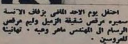 احتفل يوم الاحد الماضي بزفاف الآنسة
سميره مرقص شقيقة الزميل وليم مرقص
الرسام الى المهندس ماهر وهبه . تهانينا
للعروسين .